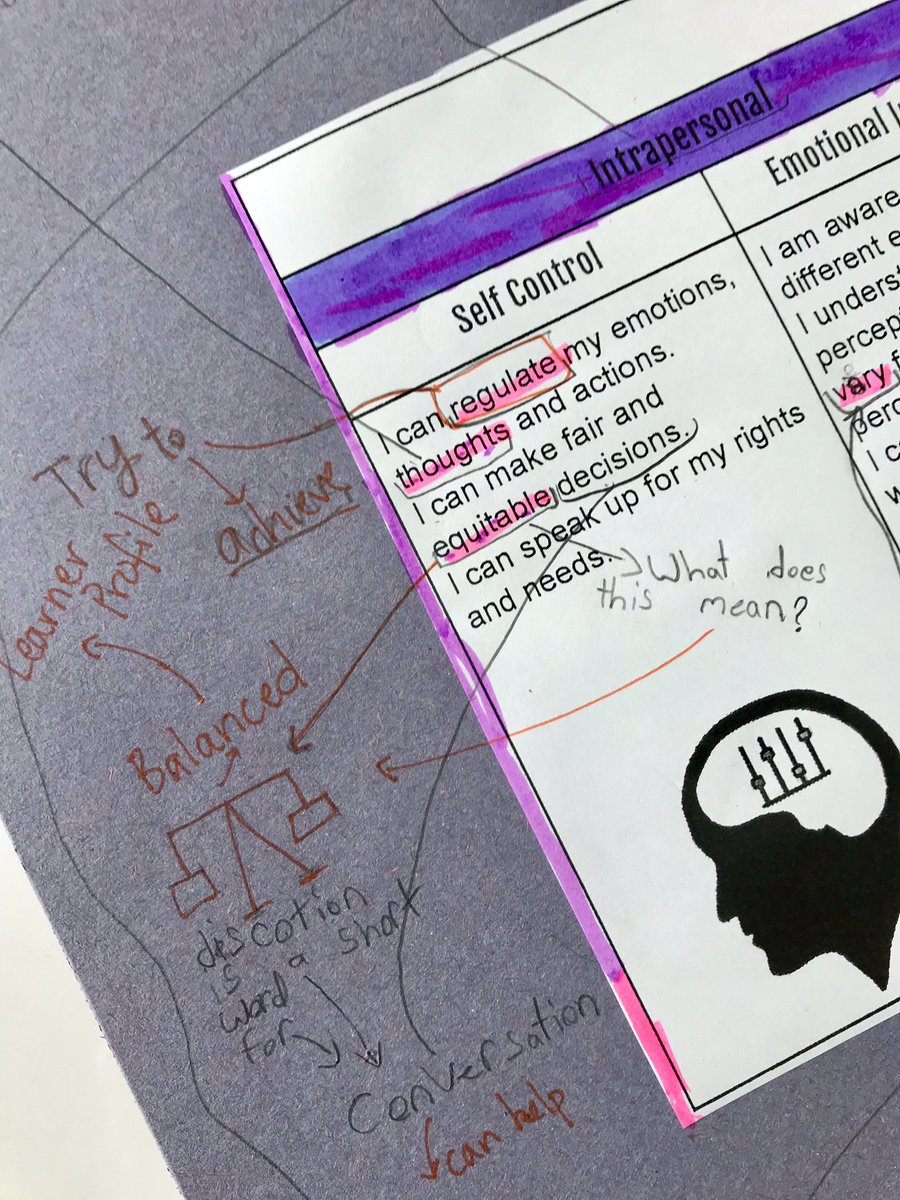 Intrapersonal
Self Control
I can regulate my emotions,
thoughts and actions.
I can make fair and
equitable decisions.
I can speak up for my rights
and needs.
Emotional
I am aware
different e
I underst
percepti
vary f
perc
I c
w
What does
this mean?
Try to
achieve
Learner
Profile
Balanced
discotion
is a short
word
for
Conversation
can help